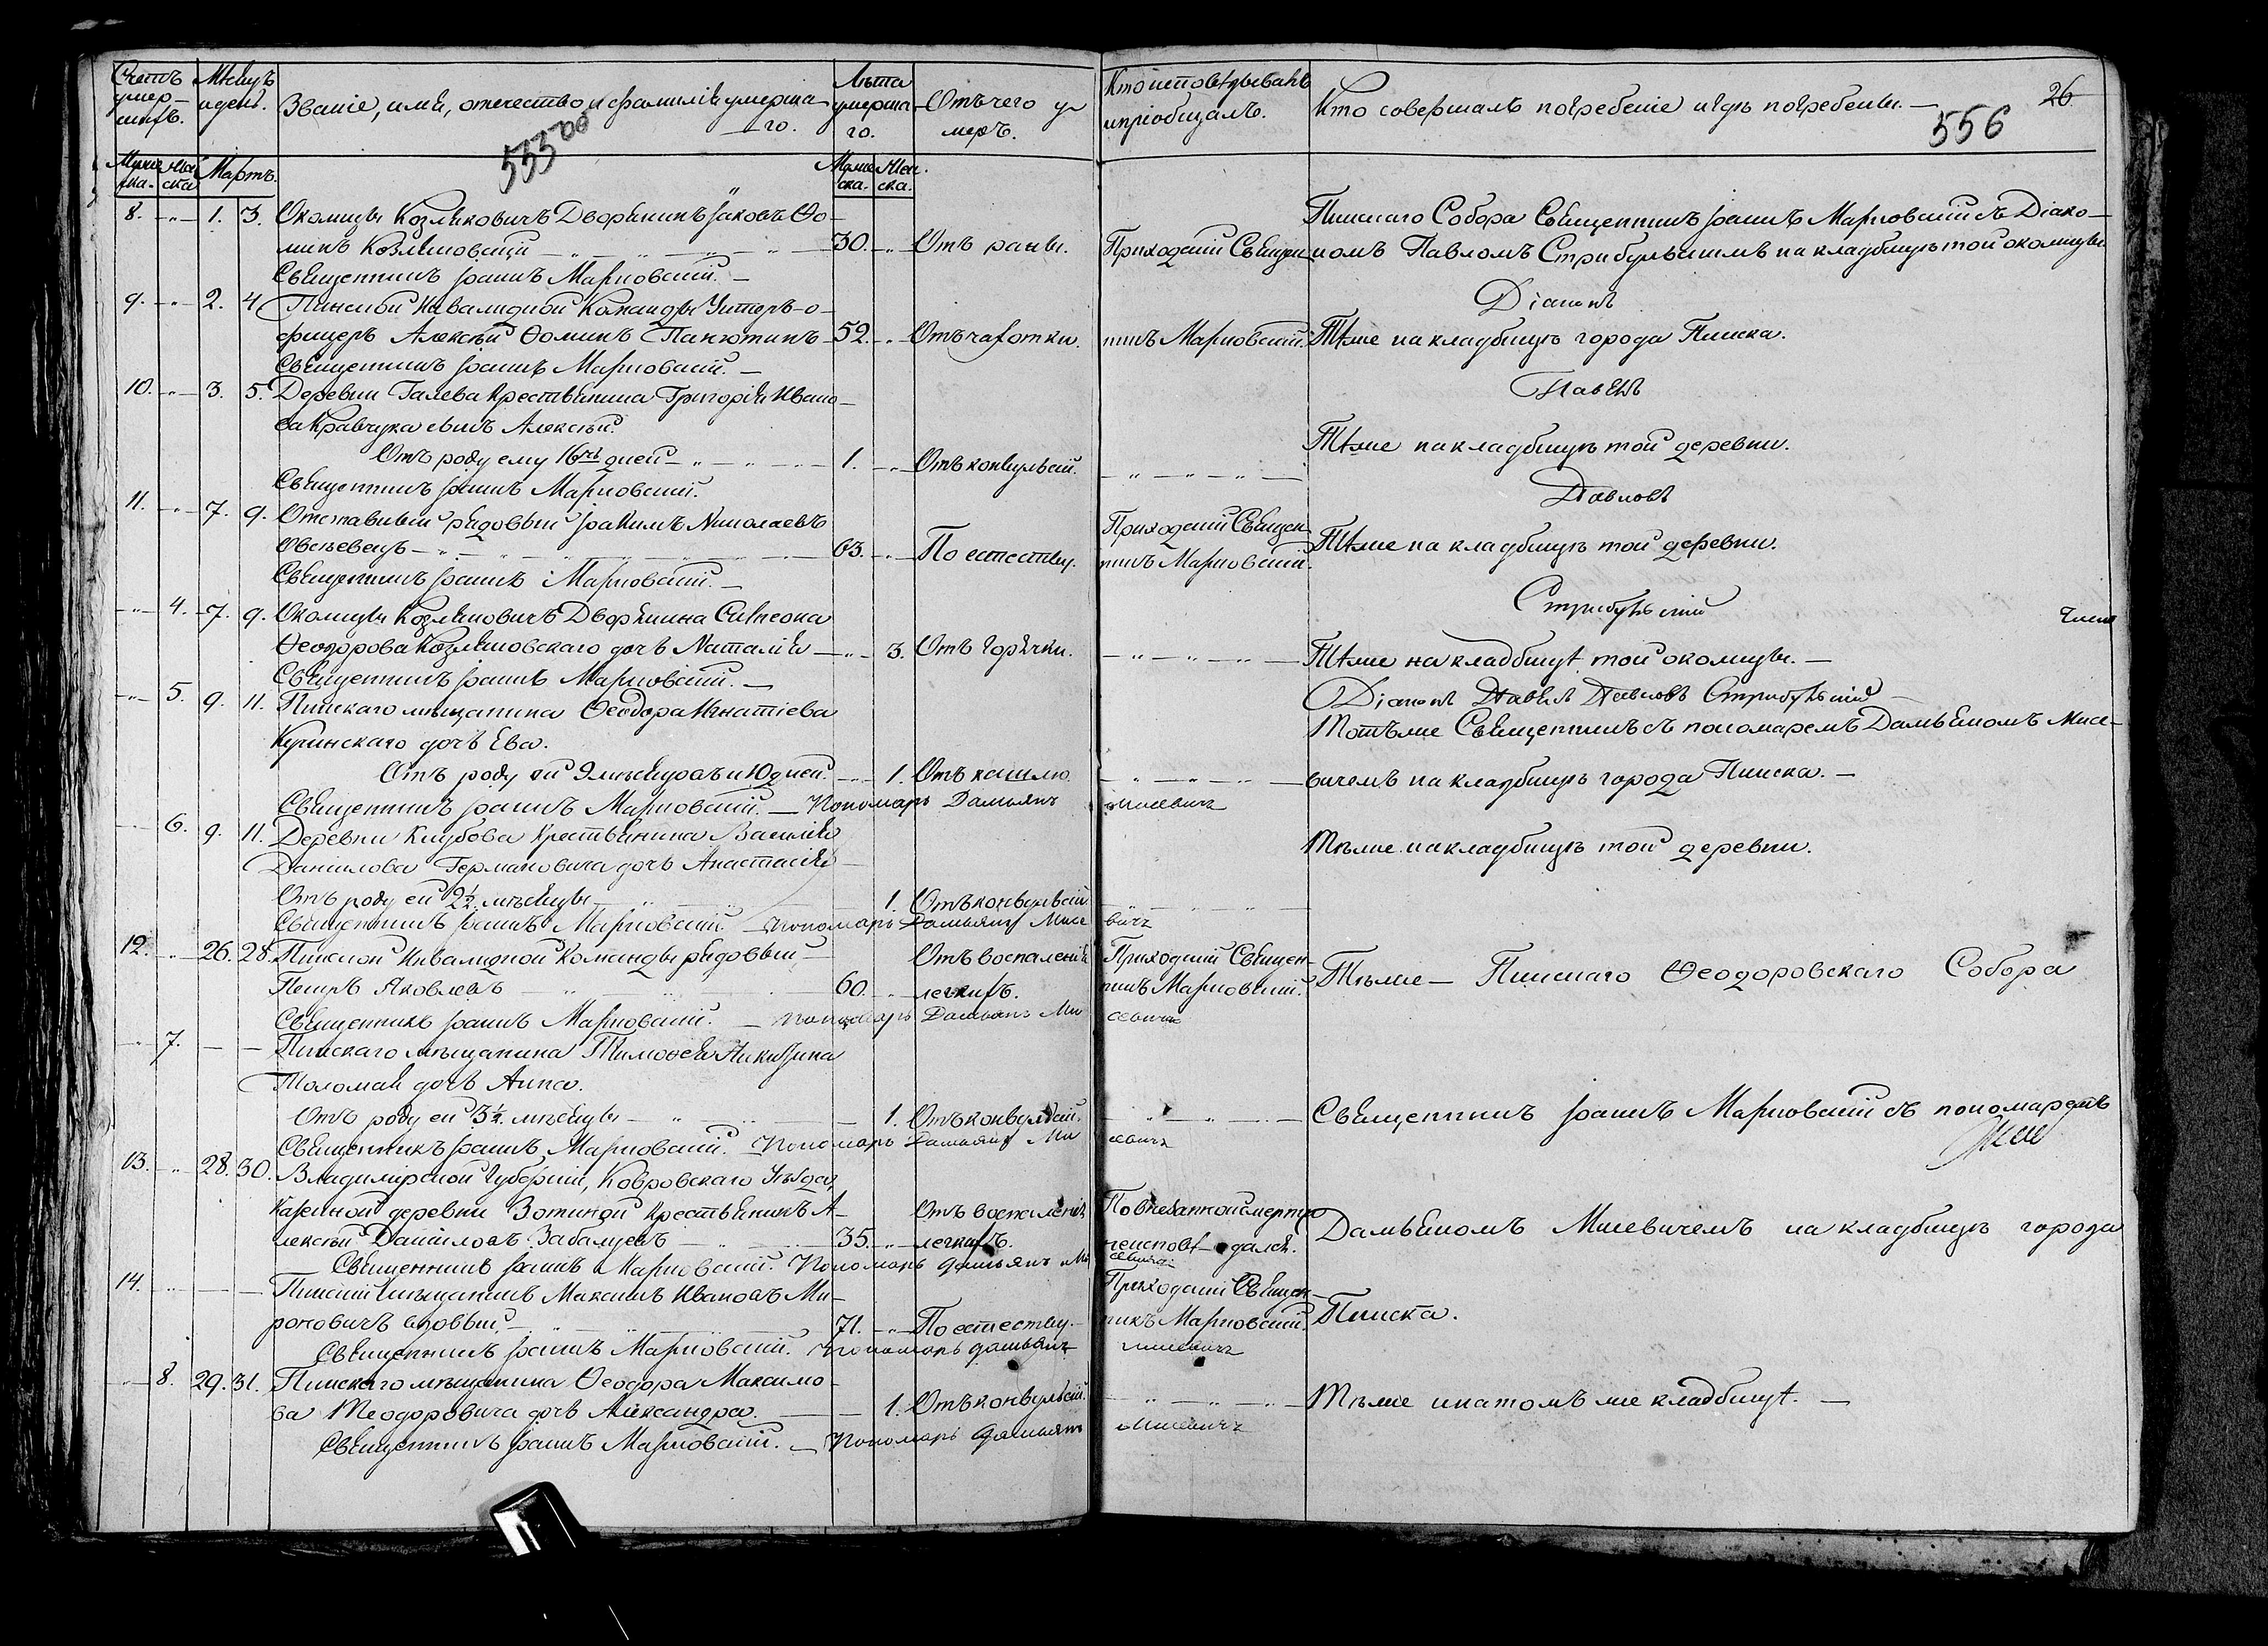 Счетъ умер- шихъ.
Мѣсяцъ и день.
Званіе, имя, отечество и фамилія умерша- го.
Лѣта умерша- го.
Отъ чего у- меръ.
Кто исповѣдывалъ и пріобщалъ.
Кто совершалъ погребеніе и гдѣ погребены.
26
556
555 об
Муже- ска. Жен ска
Мартъ.
Муже ска. Жен. ска.
8. 1. 3. Околицы Козляковичъ Дворянинъ Іаковъ Ѳо-
минъ Козляковскій 30. Отъ раны. Приходскій Священ
Пинскаго Собора Священникъ Іоаннъ Марковскій съ Діако-
номъ Павломъ Стрибульскимъ на кладбищѣ той околицы
Священникъ Іоаннъ Марковскій.
Діаконъ
9. 2. 4 Пинской Инвалидной Команды Унтеръ-о-
фицеръ Алексѣй Ѳоминъ Панютинъ 52. Отъ чахотки. никъ Марковскій. Тѣже на кладбищѣ города Пинска.
Священникъ Іоаннъ Марковскій.
Павелъ
10. 3. 5. Деревни Галева Крестьянина Григорія Ивано-
ва Кравчука сынъ Алексѣй.
Отъ роду ему 16ть дней 1. Отъ конвульсій. Тѣже на кладбищѣ той деревни.
Священникъ Іоаннъ Марковскій.
Павловъ
11. 7. 9. Отставный рядовый Іоакимъ Николаевъ
Овсѣевецъ 63. По естеству. Приходскій Священ никъ Марковскій. Тѣже на кладбищѣ той деревни.
Священникъ Іоаннъ Марковскій.
Стрибульскій
4. 7. 9. Околицы Козляковичъ Дворянина Симеона
Ѳеодорова Козляковскаго дочь Наталія 3. Отъ горячки. Тѣже на кладбищѣ той околицы.
Священникъ Іоаннъ Марковскій.
Діаконъ Павелъ Павловъ Стрибульскій
5. 9. 11. Пинскаго мѣщанина Ѳеодора Игнатіева
Тотъже Священникъ съ пономаремъ Дамьяномъ Мисе-
Куринскаго дочь Ева.
Отъ роду ей 9 мѣсяцовъ и 10 дней. 1. Отъ кашлю вичемъ на кладбищѣ города Пинска.
Священникъ Іоаннъ Марковскій. Пономарь Дамьянъ Мисевичъ
6. 9. 11. Деревни Клубова Крестьянина Василія
Тѣже на кладбищѣ той деревни.
Данилова Германовича дочь Анастасія
Отъ роду ей 2½ мѣсяцы 1. Отъ конвульсій
Священникъ Іоаннъ Марковскій. Пономарь Дамьянъ Мисе вичъ
12. 26. 28. Пинской Инвалидной Команды рядовый
Петръ Яковлевъ 60. Отъ воспаленія легкихъ. Приходскій Священ- никъ Марковскій. Тѣже Пинскаго Ѳеодоровскаго Собора
Священникъ Іоаннъ Марковскій. Пономарь Дамьянъ Ми севичъ
7. Пинскаго мѣщанина Тимоѳея Никитина
Толомая дочь Анна.
Отъ роду ей 3½ мѣсяцы 1. Отъ конвульсій. Священникъ Іоаннъ Марковскій съ пономаремъ
Священникъ Іоаннъ Марковскій. Пономарь Дамьянъ Ми севичъ
13. 28. 30. Владимірской Губерніи, Ковровскаго Уѣзда,
Казенной деревни Зотиной Крестьянинъ А-
лексѣй Даниловъ Забалуевъ 35. Отъ воспаленія легкихъ. По внезапной смерти неисповѣдался. Дамьяномъ Мисевичемъ на кладбищѣ города
Священникъ Іоаннъ Марковскій. Пономарь Дамьянъ Ми севичъ
14. Пинскій мѣщанинъ Максимъ Ивановъ Ми-
роновичъ вдовый 71. По естеству. Приходскій Священ- никъ Марковскій. Пинска.
Священникъ Іоаннъ Марковскій. Пономарь Дамьянъ Мисевичъ
8. 29. 31. Пинскаго мѣщанина Ѳеодора Максимо-
ва Теодоровича дочь Александра. 1. Отъ конвульсій. Тѣже и на томъ же кладбищѣ.
Священникъ Іоаннъ Марковскій. Пономарь Дамьянъ Мисевичъ